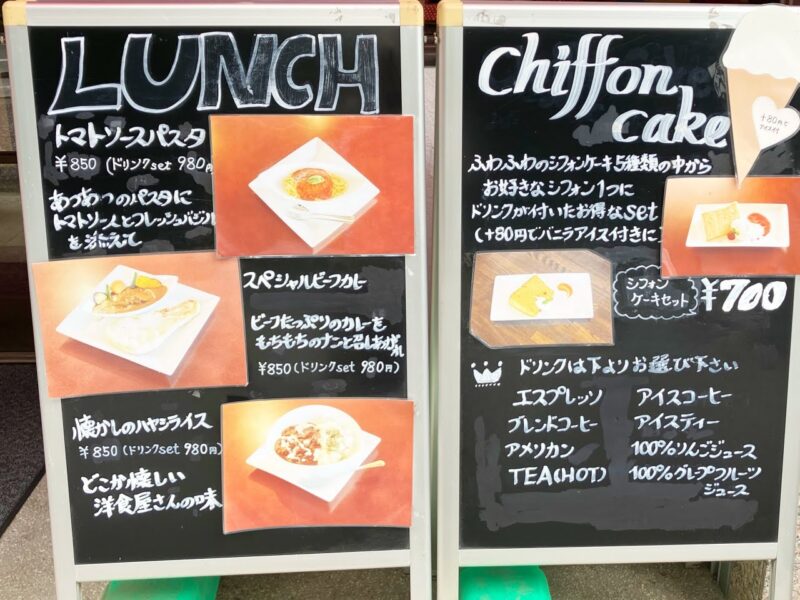 LUNCH
トマトソースパスタ
¥850 (ドリンクset 980円
あつあつのパスタに
トマトソースとフレッシュバジル
を添えて
スペシャルビーフカレー
ビーフたっぷりのカレーを
もちもちのナンと召しあがれ
¥850 (ドリンクset 980円)
懐かしのハヤシライス
¥850 (ドリンクset 980円)
どこか懐しい
洋食屋さんの味
Chiffon
cake
+80円で
アイス付
ふわふわのシフォンケーキ5種類の中から
お好きなシフォン1つに
ドリンクが付いたお得なset
(+80円でバニラアイス付きに)
シフォン
ケーキセット
¥700
ドリンクは下よりお選び下さい
エスプレッソ アイスコーヒー
ブレンドコーヒー アイスティー
アメリカン 100%りんごジュース
TEA(HOT) 100%グレープフルーツ
ジュース